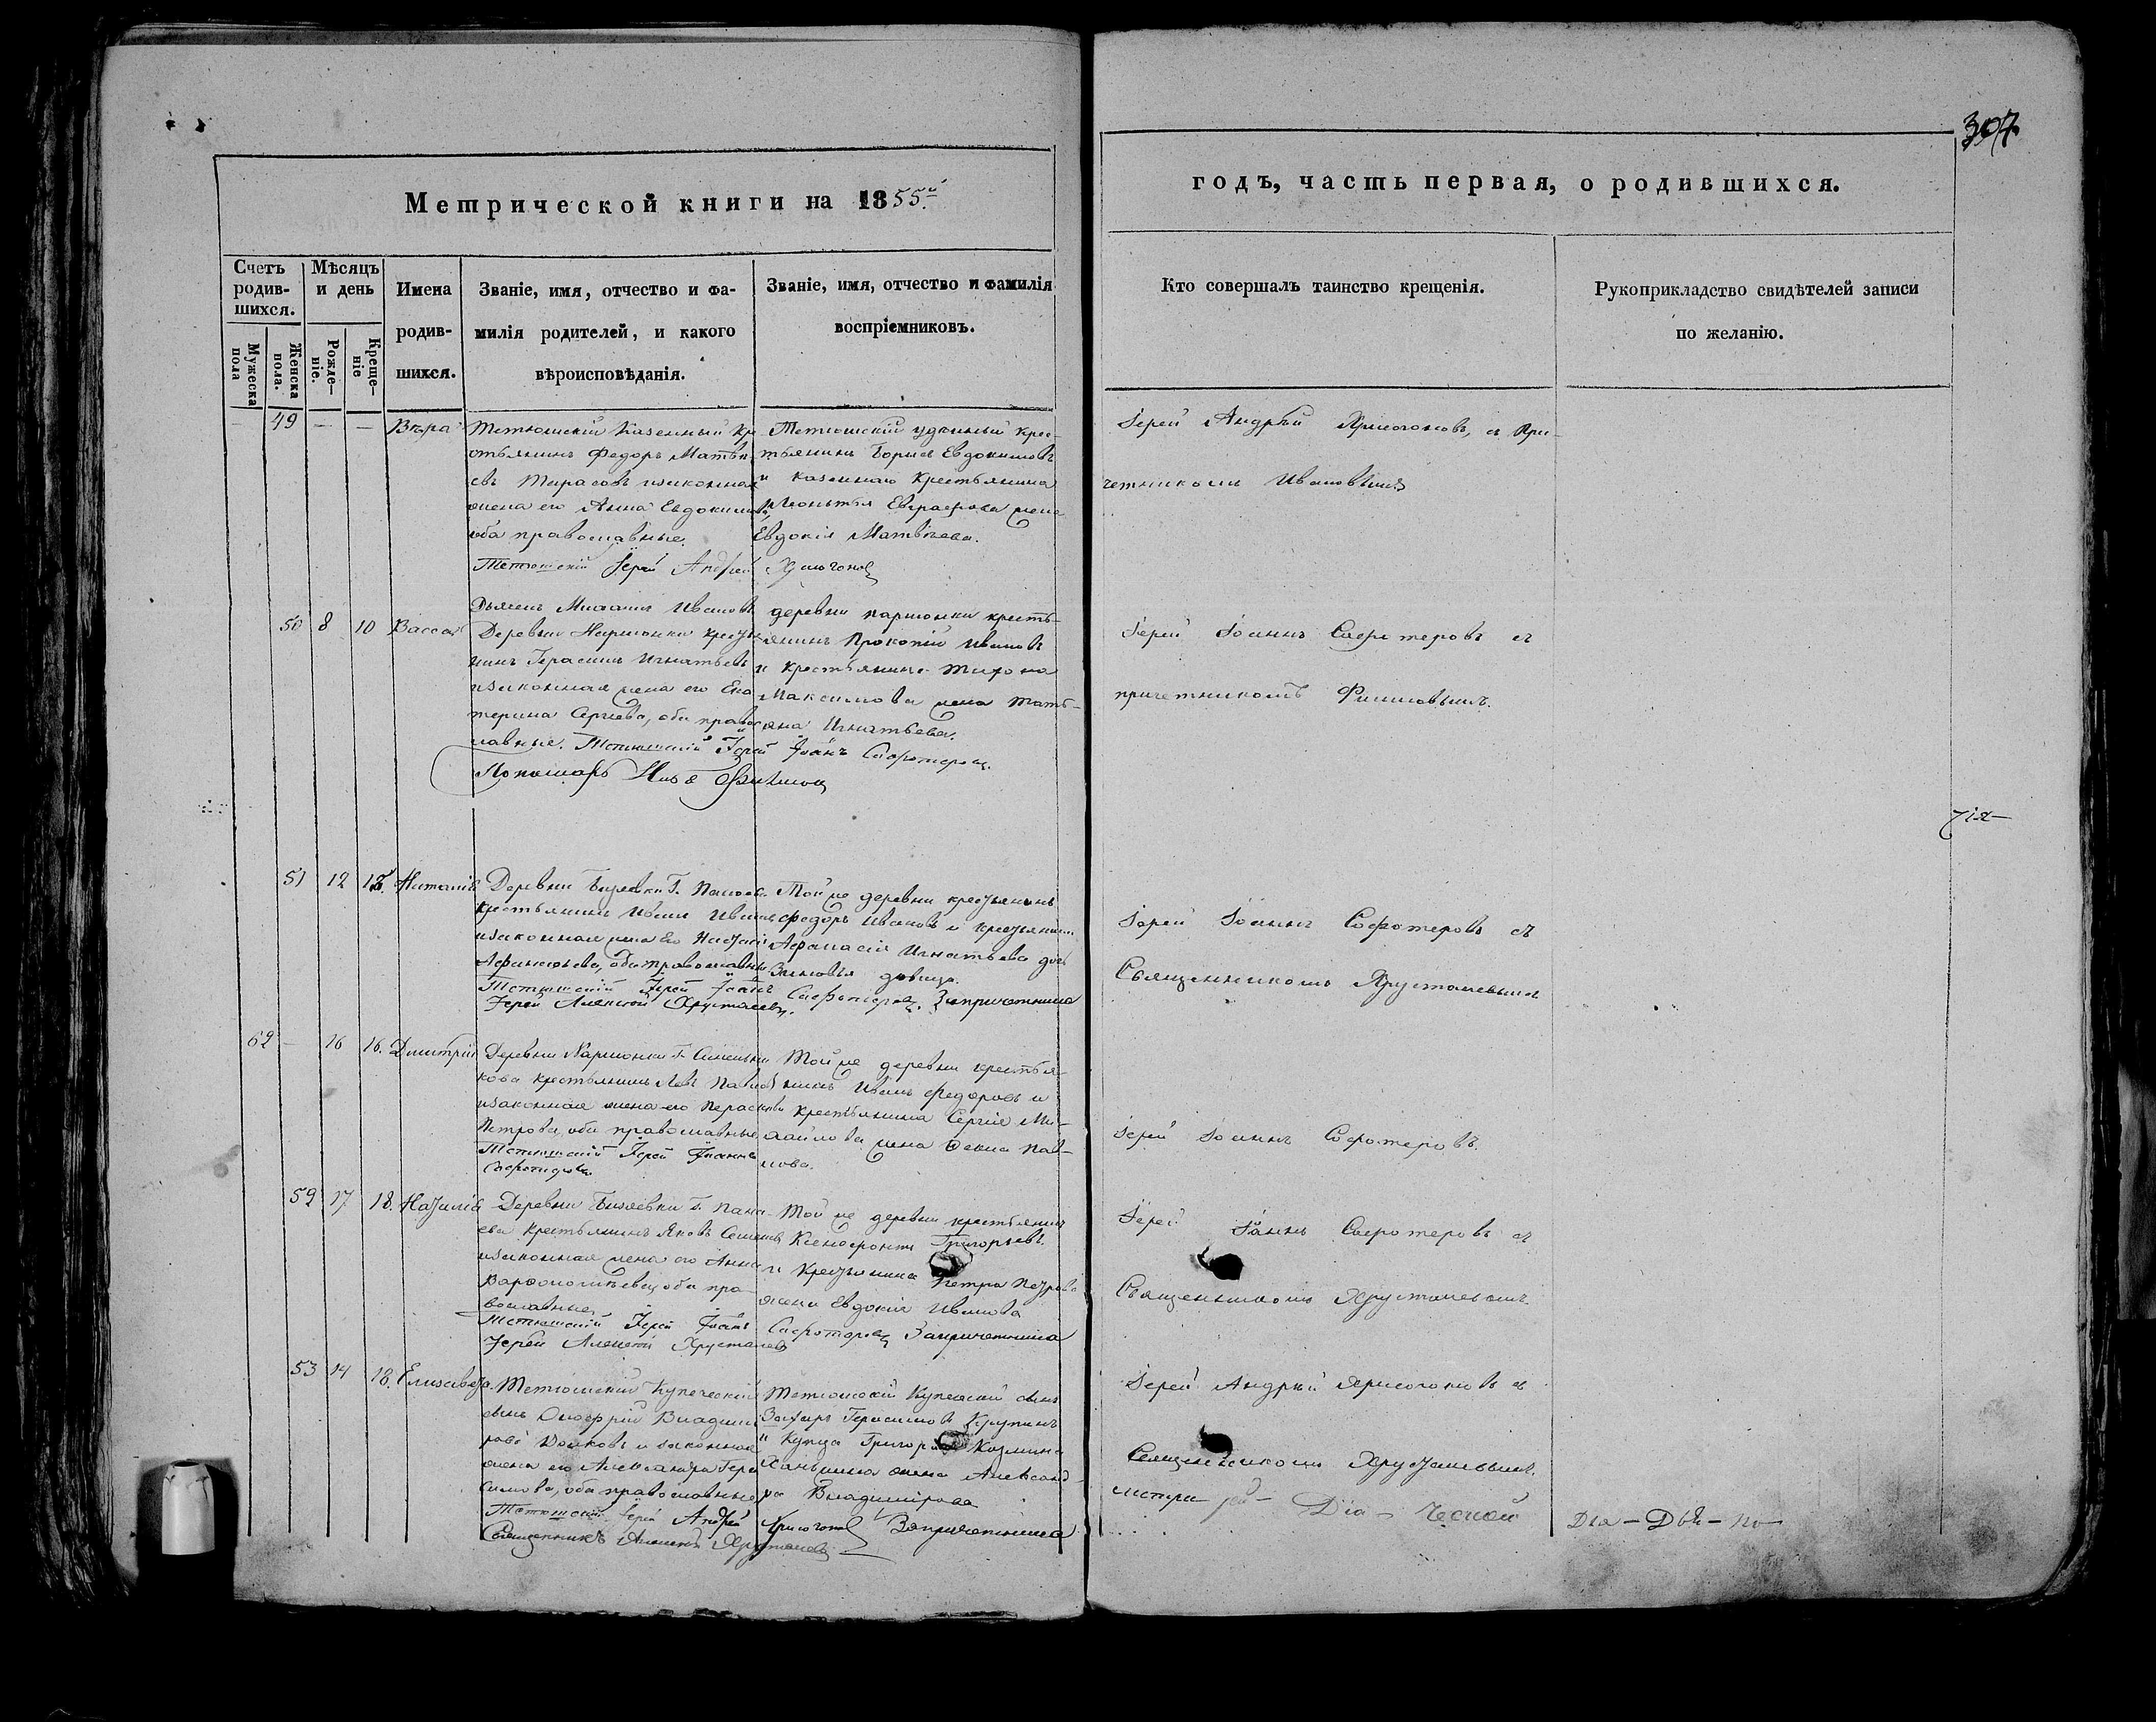 307.
Метрической книги на 1855й
годъ, часть первая, о родившихся.
Счетъ родив-шихся.
Мужеска пола
Женска пола.
Мѣсяцъ и день
Рожде-ніе.
Креще-ніе
Имена родив-шихся.
Званіе, имя, отчество и фа-
милія родителей, и какого
вѣроисповѣданія.
Званіе, имя, отчество и фамилія
воспріемниковъ.
Кто совершалъ таинство крещенія.
Рукоприкладство свидѣтелей записи
по желанію.
— 49 — — Вѣра
Тетюшскій Казенный Кре
стьянинъ Федоръ Матвѣ
евъ Тарасовъ изаконная
жена его Анна Евдокимова,
оба православные.
Тетюшскій Іерей Андрей Хрисогоновъ
Тетюшскій удѣльный крес-
тьянинъ Борисъ Евдокимовъ
и казеннаго Крестьянина
Евграфова жена
Евдокія Матвѣева.
Іерей Андрей Хрисогоновъ, съ При-
четникомъ Ивановымъ
50 8 10 Васса
Дьячекъ Михаилъ Ивановъ
Деревни Крестья
нинъ Герасимъ Игнатьевъ
изаконная жена его Ека
терина Сергѣева, оба правос
лавные. Тетюшскій Іерей Іоаннъ Сафотеровъ.
Пономарь Филиповъ
деревни кресть-
янинъ Прокопій Ивановъ
и крестьянина Тихона
Максимова жена Тать-
яна Игнатьева.
Іерей Іоаннъ Сафотеровъ съ
причетникомъ Филиповымъ.
51 12 13. Наталія
Деревни Г. Панаева
крестьянинъ Иванъ Ивановъ
изаконная жена Его
Афанасьева, оба православны
Тетюшскій Іерей Іоаннъ Сафотеровъ. Запричетника
Іерей Алексѣй Хрусталевъ.
Той же деревни крестьянинъ
Федоръ Ивановъ и крестьянина
Афанасія Игнатьева дочь
Зиновья дѣвица.
Іерей Іоаннъ Сафотеровъ съ
Священникомъ Хрусталевымъ
62 — 16 16. Дмитрій
Деревни Г.
кова крестьянинъ Левъ Павловъ
изаконная жена его Параскева
Петрова, оба православные
Тетюшскій Іерей Іоаннъ
Сафотеровъ
Той же деревни крестья-
нинъ Иванъ Федоровъ и
крестьянина Сергѣя Ми-
хайлова жена Фекла Пав-
лова.
Іерей Іоаннъ Сафотеровъ.
52 17 18. Наталія
Деревни Г. Пана
ева крестьянинъ Яковъ Семеновъ
изаконная жена его Анна
Варфоломѣева, оба пра-
вославные
Тетюшскій Іерей Іоаннъ Сафотеровъ Запричетника
Іерей Алексѣй Хрусталевъ
Той же деревни крестьянинъ
Ксенофонтъ Григорьевъ.
и Крестьянина Петра Петрова
жена Евдокія Иванова
Іерей Іоаннъ Сафотеровъ съ
Священникомъ Хрусталевымъ
53 14 18. Елисавета
Тетюшскій Купеческій
сынъ Онофрій Владими
ровъ и законная
жена его Александра Гера
симова, оба православные
Тетюшскій Іерей Андрей Хрисогоновъ Запричетника
Священникъ Алексѣй Хрусталевъ
Тетюшскій Купеческій сынъ
Захаръ Герасимовъ
и Купца Григорія Козмина
жена Александ-
ра Владимірова
Іерей Андрей Хрисогоновъ съ
Священникомъ Хрусталевымъ.
Діа – ческой